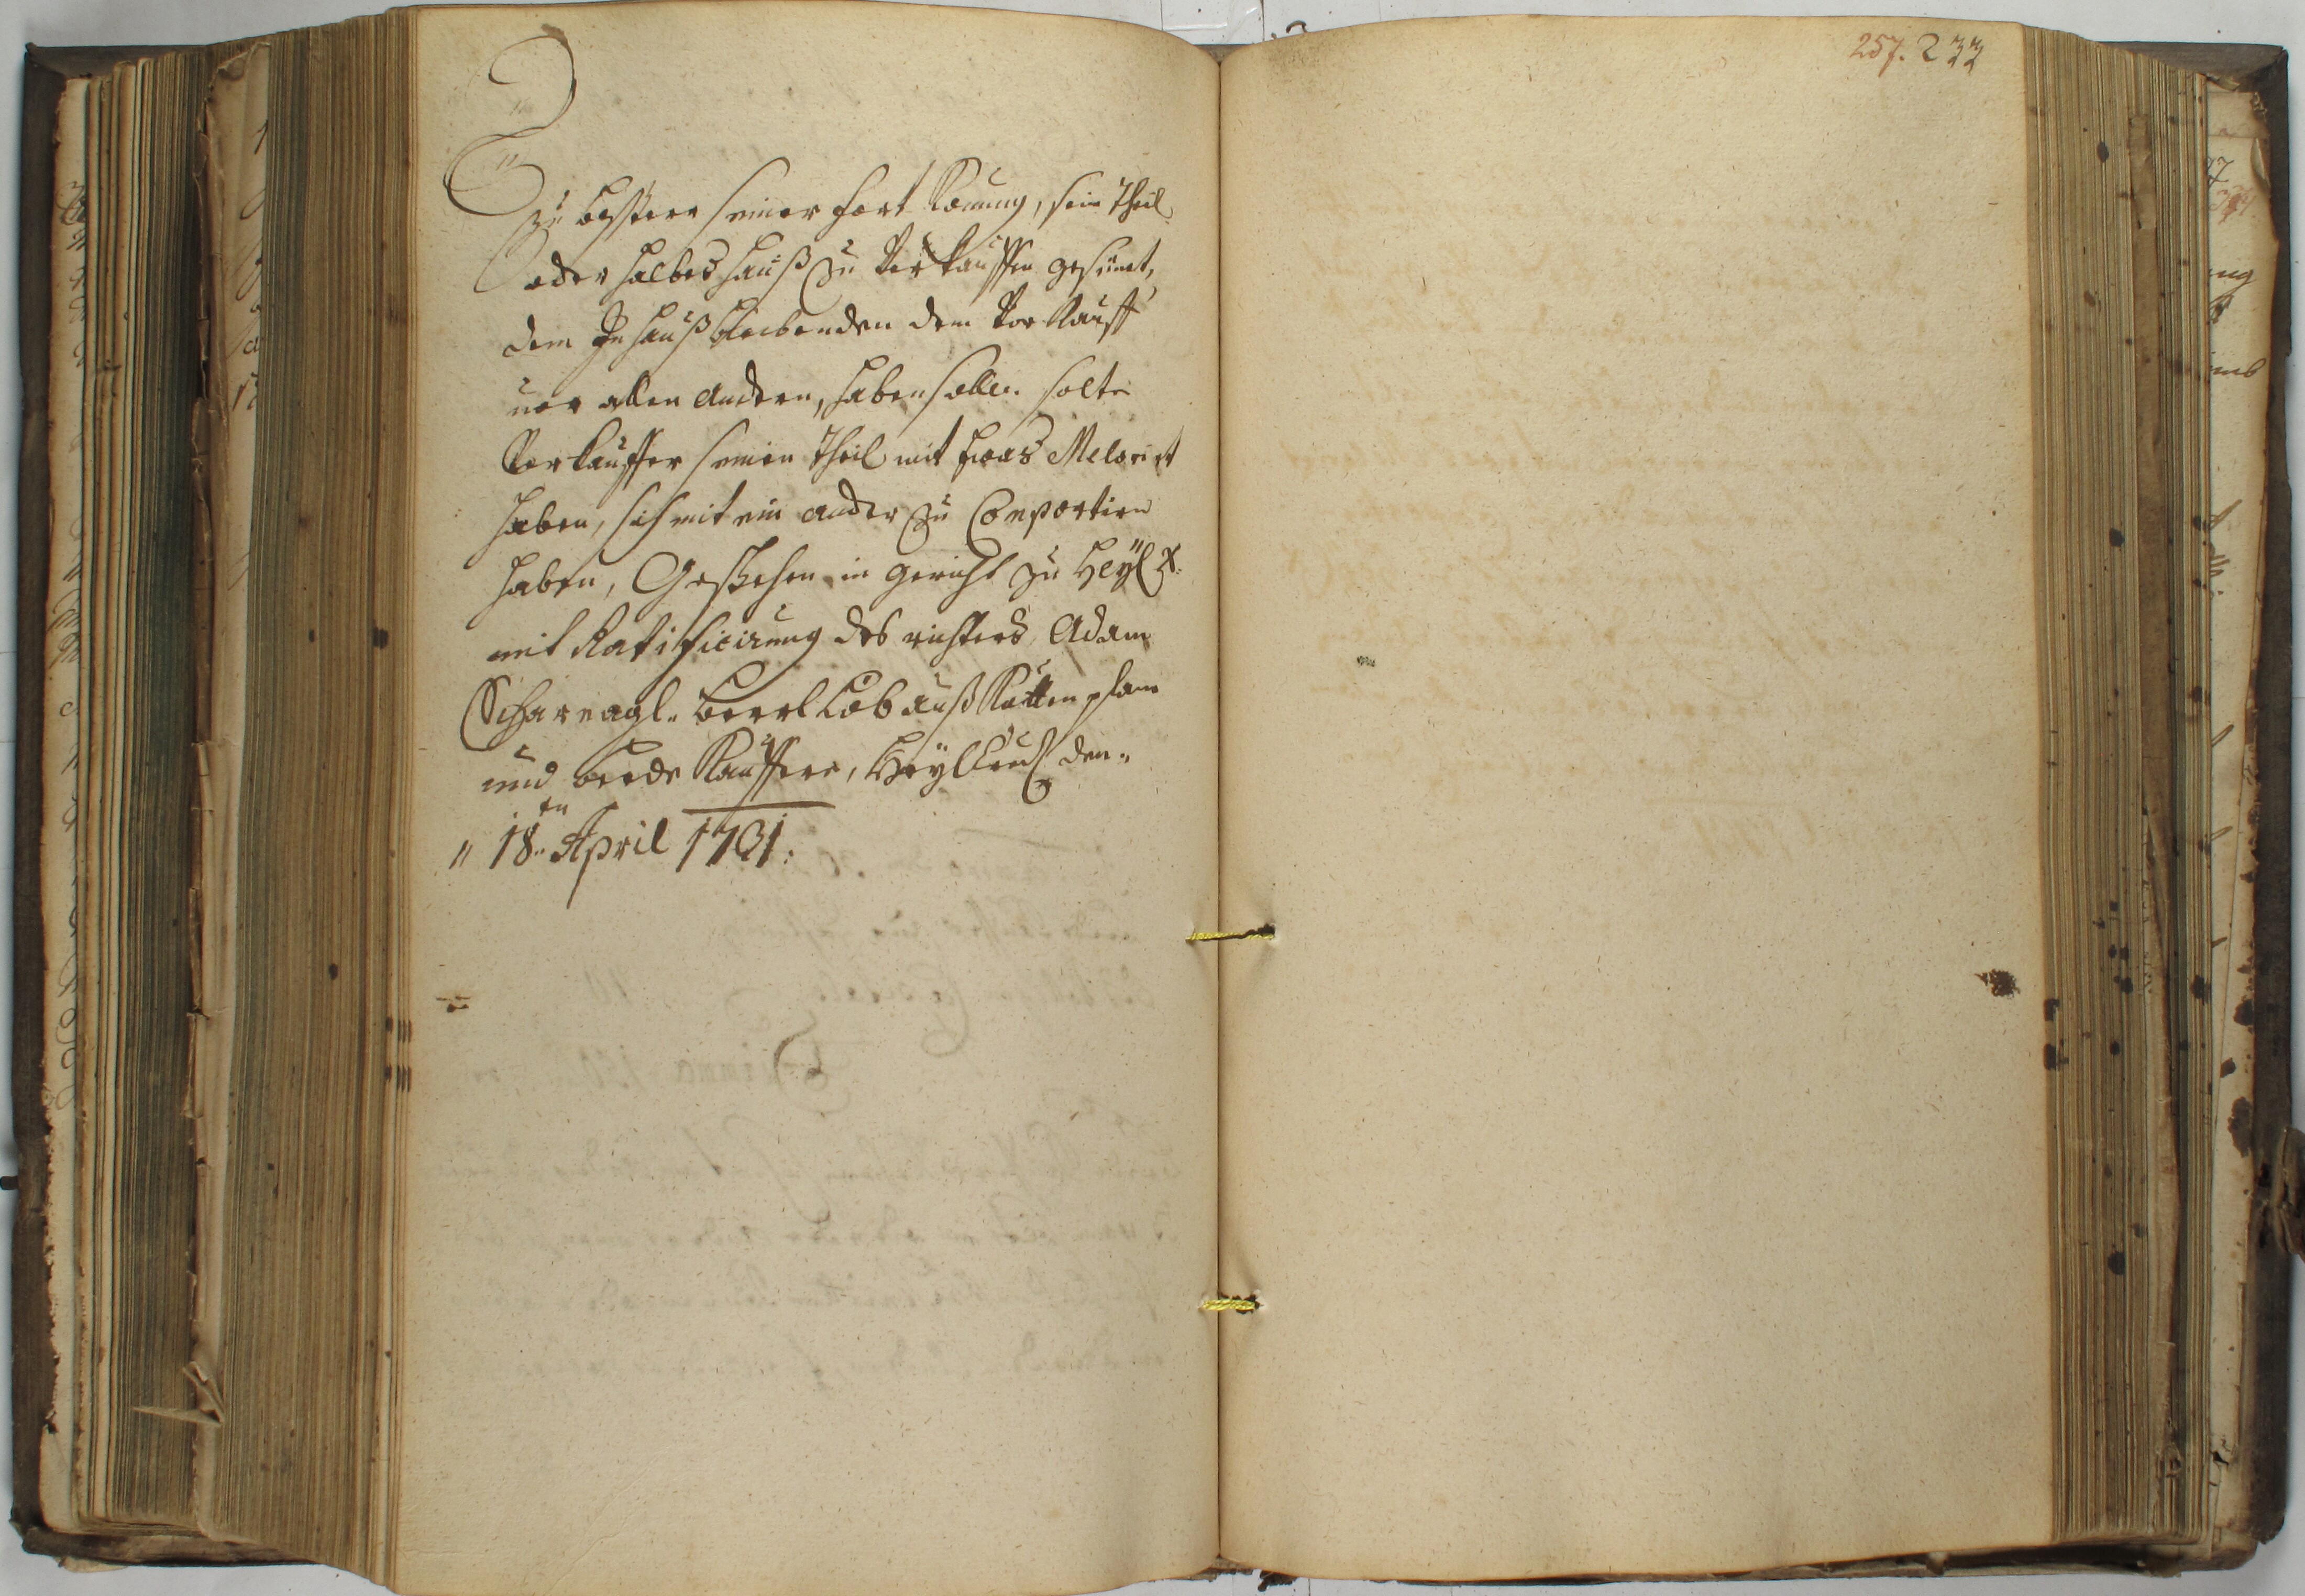 257. 233
Zu bessern seiner fort komung, sein Theil
oder halbes hauß zu Verkauffen gesinnet,
dem In hauß bleibenden dem Vor Kauff
vor allen andern, haben solle. solte
Verkauffer seinen Theil mit was Meloriert
haben, sich mit ein ander zu Comportirn
haben, Geschehen in gericht zu Heyl
mit Ratificirung des richters Adam
Scharnagl. Löb auß
und beede Kauffere, den„
„ 18.ten April 1731.